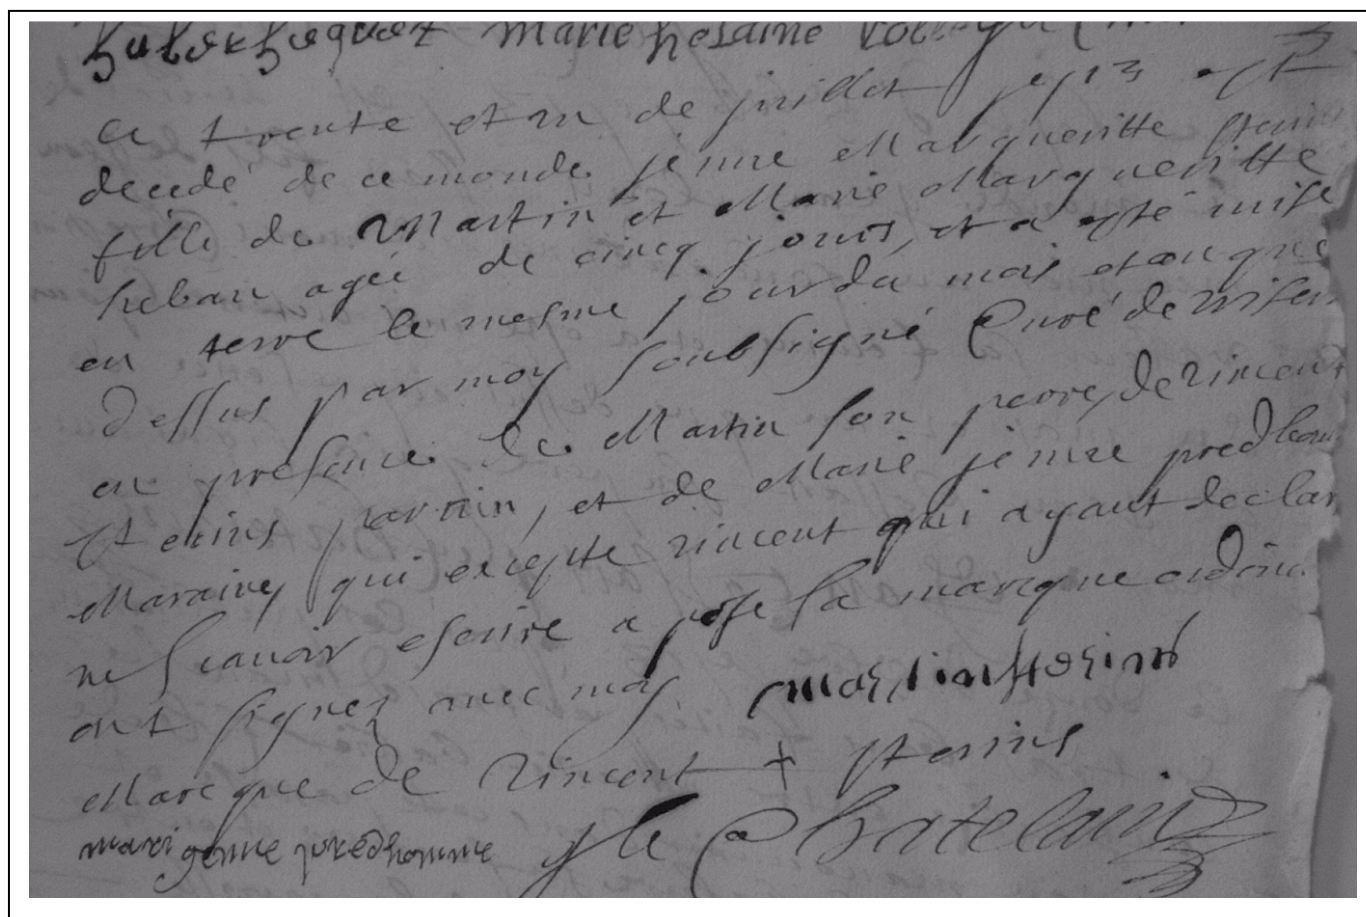 marie helaine
le trente et un de juillet 1713 est
decedé de ce monde jenne Margueritte
fille de Martin et Marie Margueritte
heban agée de cincq jours, et a esté mise
en terre le mesme jour du mois et an que
dessus par moy soubsigné Curé de
en presence de Martin son perre, de vincent
stenins parrin, et de Marie jenne
Maraine, qui excepté vincent qui ayant
ne scavoir escrire a posé sa marcque
ont signez avec moy martin stenins
Marcque de vincent + stenins
mari genne predhomme Chatelain